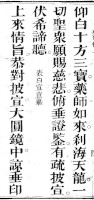 仰白十方三寶藥師如來利海天龍一
切聖眾願賜慈悲俯垂證鑒有疏披宣
伏希諦聽
表白宣疏
上來情旨恭對披宣大圓鏡中諒垂印